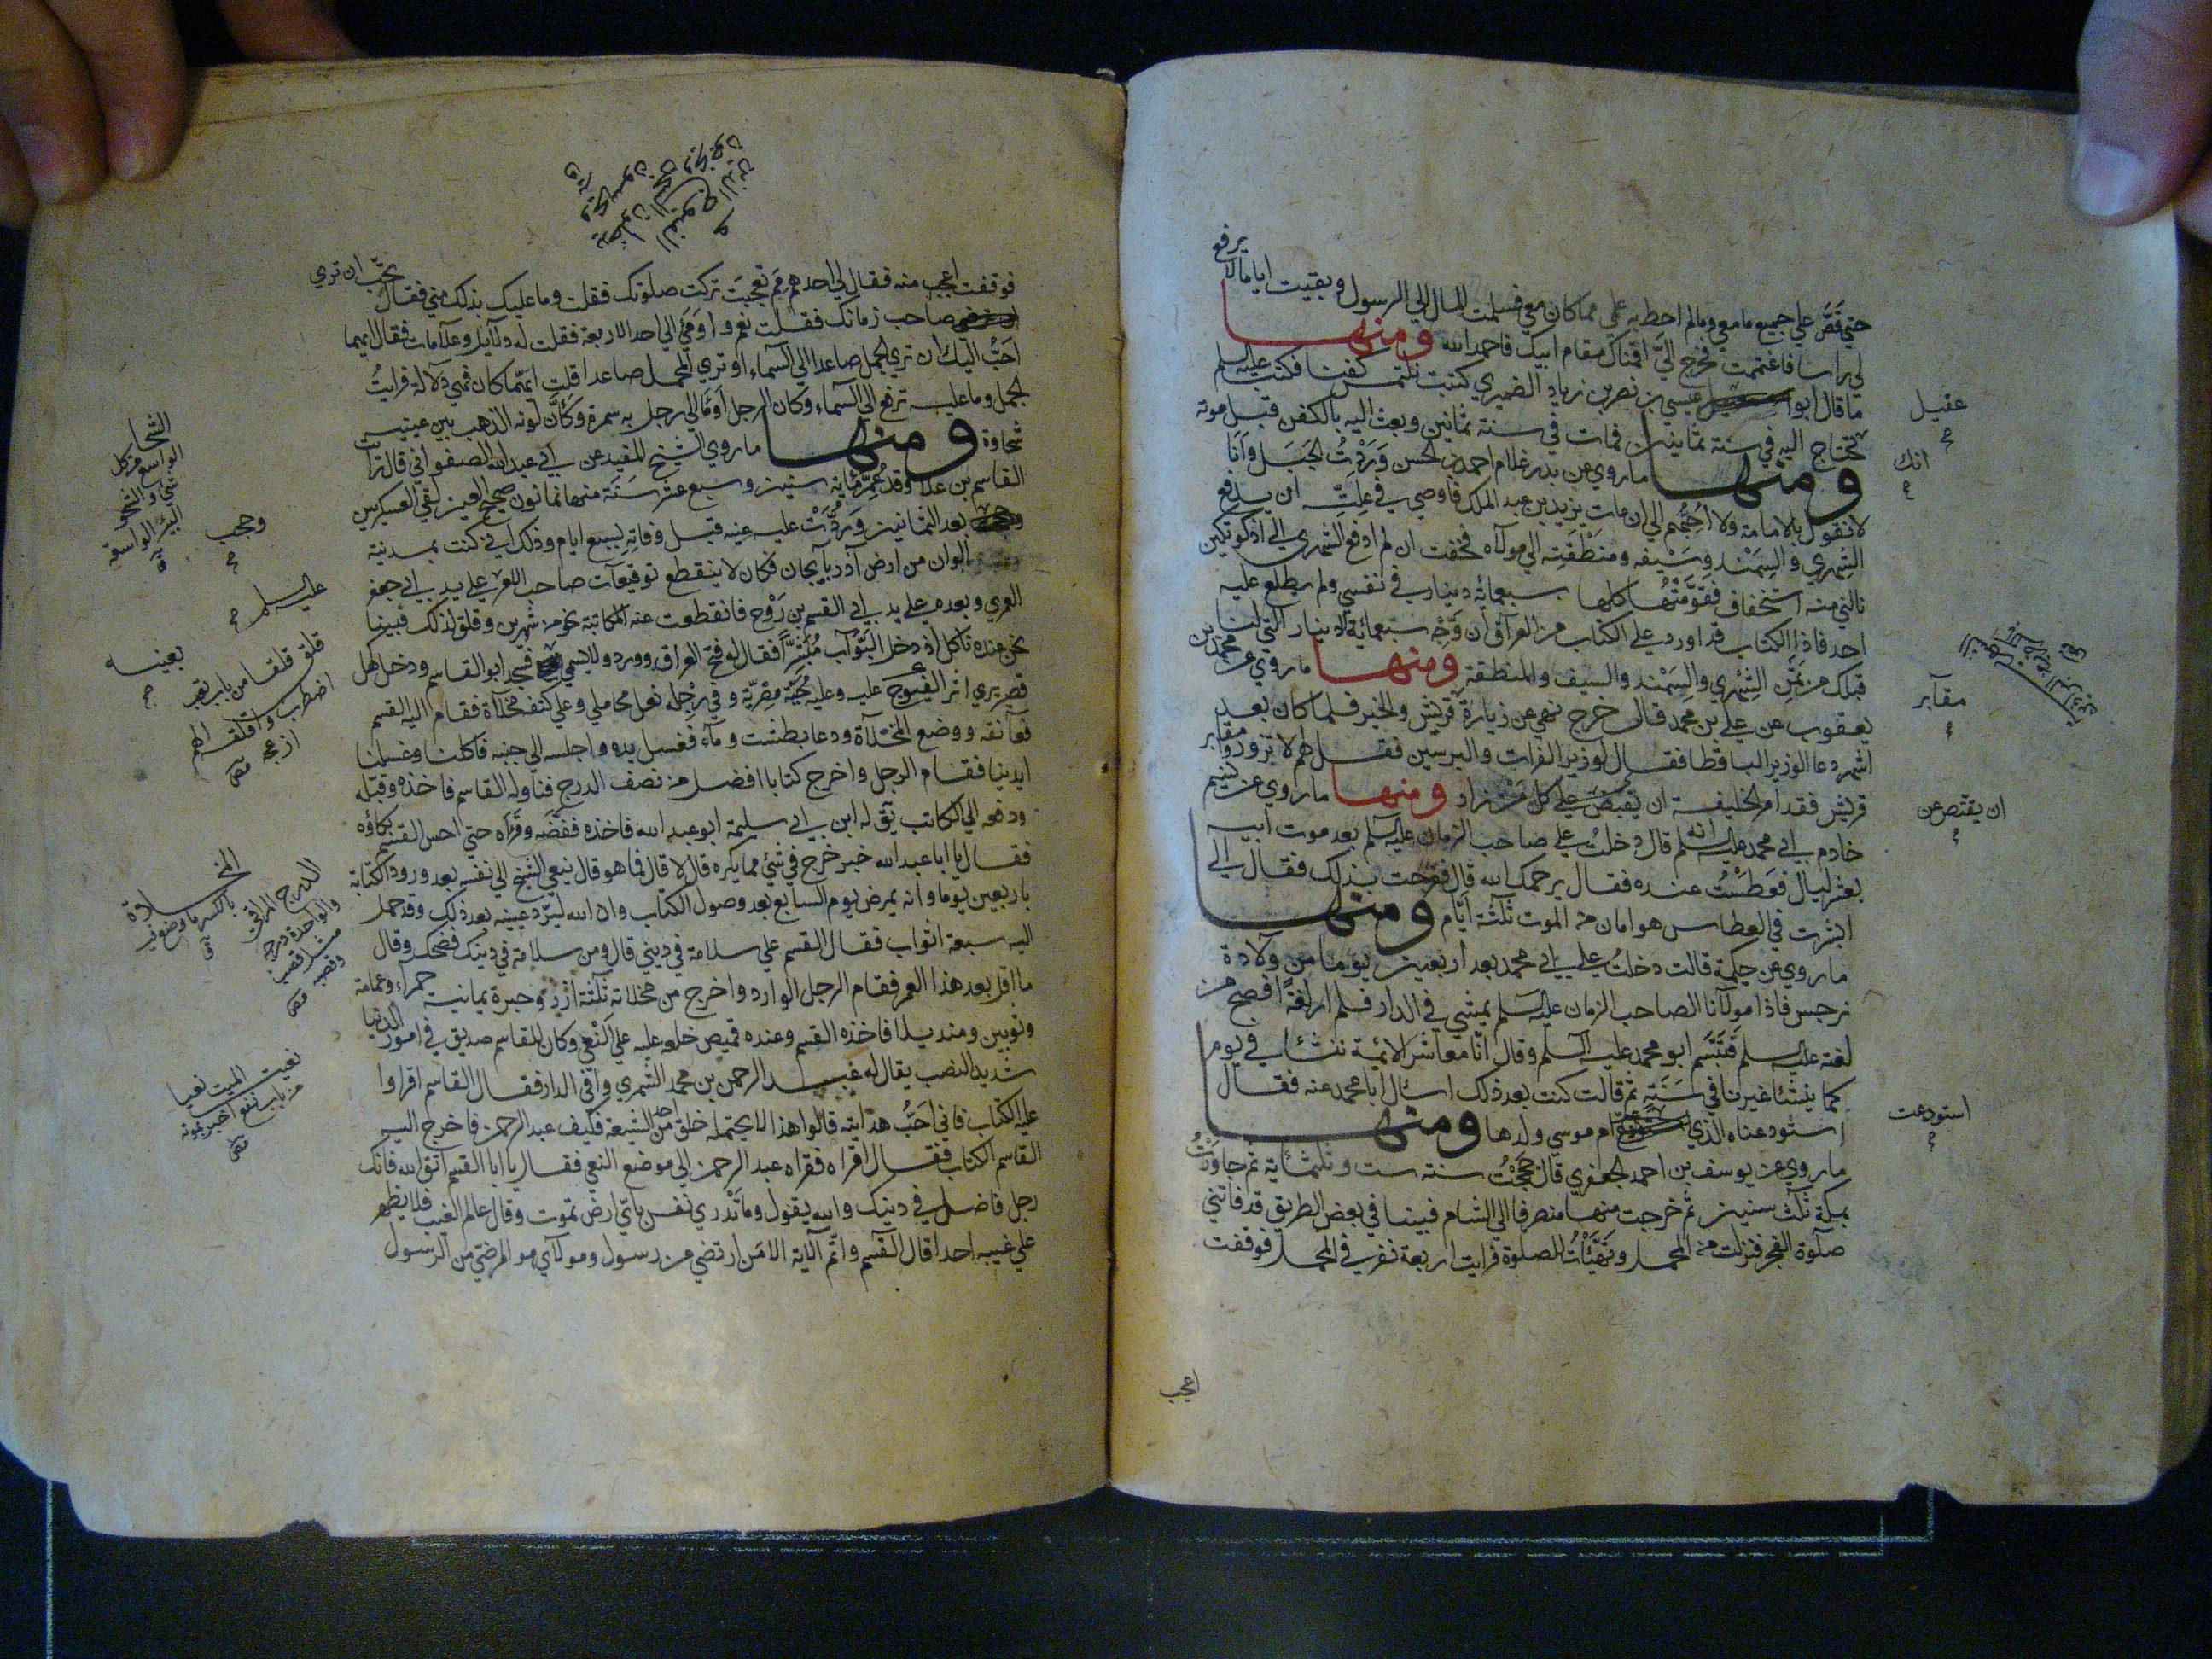 يرفع
حتي قص علي جميع ما معي ومالم احط به علي مما كان معي فسلمت المال الي الرسول وبقيت اياما لا
لي راسا فاغتممت فخرج اليّ اقمناك مقام ابيك فاحمد الله ومنها
ما قال ابو عيسي بن نصر بن زياد الضميري كتبت نلتمس كفنا فكتب عليه السلم
تحتاج اليه في سنة ثمانين فمات في سنة ثمانين وبعث اليه بالكفن قبل موته
ومنها ما روي عن بدر غلام احمد بن الحسن وَرَدْتُ الجَبَل وانا
لا نقول بالامامة ولا احبهم الي ان مات يزيد بن عبد الملك فاوصي في علته ان يدفع
الشهري والسمند وسيفه ومنطقته الي مولاه فخفت ان لم ادفع الشهري الي اذكوتكين
نالني منه استخفاف فقومتها كلها بسبعمائة دينار في نفسي ولم يطلع عليه
احد فاذا الكتاب قد اورد علي الكتاب من العراق ان وجه سبعمائة الدينار التي لنا
قبلك من ثمن الشهري والسمند والسيف والمنطقة ومنها ما روي عن محمد بن
يعقوب عن علي بن محمد قال خرج نهي عن زيارة قريش والخبر فلما كان بعد
اشهر دعا الوزير الباقطا فقال لوزير الفرات والبرسين فقل لهم لا تزوروا مقابر
قريش فقد امر الخليفة ان يقبض علي كل من زار ومنها ما روي عن نسيم
خادم ابي محمد عليه السلم انه قال دخلت علي صاحب الزمان عليه السلم بعد موت ابيه
بعشر ليال فعطست عنده فقال يرحمك الله قال ففرحت بذلك فقال الي
ابشرت في العطاس هو امان من الموت ثلثة ايام ومنها
ما روي عن حكيمة قالت دخلت علي ابي محمد بعد اربعين يوما من ولادة
نرجس فاذا مولانا الصاحب الزمان عليه السلم يمشي في الدار فلم ار لغة افصح من
لغته عليه السلم فتبسم ابو محمد عليه السلم وقال انا معاشر الائمة ننشأ في يوم
كما ينشأ غيرنا في سنة ثم قالت كنت بعد ذلك اسال ابا محمد عنه فقال
استودعناه الذي ام موسي ولدها ومنها
ما روي عن يوسف بن احمد الجعفري قال حججت سنة ست وثلثمائة ثم جاورت
بمكة ثلث سنين ثم خرجت منها منصرفا الي الشام فبينا في بعض الطريق قد فاتني
صلوة الفجر فنزلت من المحمل وتهيأت للصلوة فرايت اربعة نفر في المحمل فوقفت
اعجب
عقيل
انك
مقابر
ان يقتص عن
استودعت
فوقفت اعجب منه فقال لي احدهم مم تعجبت تركت صلوتك فقلت وما عليك بذلك مني فقال تحبّ ان تري
صاحب زمانك فقلت نعم واومي الي احد الاربعة فقلت له دلايل وعلامات فقال ايهما
احبّ اليك ان تري الجمل صاعدا الي السماء او تري المحمل صاعدا قلت ايهما كان فهي دلالة فرايتُ
الجمل وما عليه ترفع الي السماء وكان الرجل اومأ الي رجل به سمرة وكأنّ لونه الذهب بين عينيه
شحاوة ومنها ما روي الشيخ المفيد عن ابي عبد الله الصفواني قال رايت
القاسم بن علا وقد عُمِّر مائة سنين وسبع عشر سَنَة منها ثمانون صحيح العين لقي العسكرين
بعد الثمانين ورُدّت عليه عينه قبل وفاته بسبع ايام وذلك اني كنت بمدينة
الوان من ارض آذربايجان فكان لا ينقطع توقيعات صاحب الامر علي يد ابي جعفر
العمري وبعده علي يد ابي القسم بن رَوْح فانقطعت عنه المكاتبة نحو من شهرين وقلق لذلك فبينا
نحن عنده ناكل اذ دخل البوّاب مُبَشّراً فقال له فيج العراق وورد ولا يسمي فسجد ابو القاسم ودخل كهل
قصير يري اثر الفيوج عليه وعليه جُبّة مضريّة وفي رجله نعل محاملي وعلي كتفه مخلاة فقام اليه القسم
فعانقه ووضع المخلاة ودعا بطشت وماء فغسل يده واجلسه الي جنبه فاكلنا وغسلنا
ايدينا فقام الرجل واخرج كتابا افضل من نصف الدرج فناوله القاسم فاخذه وقبّله
ودفعه الي الكاتب يقا له ابن ابي سليمة ابو عبد الله فاخذه ففضّه وقراه حتي احس القسم بكاؤه
فقال يا ابا عبد الله خبر خرج في شئ مما يكره قال لا قال فما هو قال ينعي الشيخ الي نفسه بعد ورود الكتابة
باربعين يوما وانه يمرض يوم السابع بعد وصول الكتاب وان الله ليرد عينيه بعد ذلك وقد حمل
اليه سبعة اثواب فقال القسم علي سلامة في ديني قال ومن سلامة في دينك فضحك وقال
ما اقل بعد هذا العمر فقام الرجل الوارد واخرج من مخلاته ثلثة ازر وحبرة يمانيت حمراء وعمامة
وثوبين ومنديلا فاخذه القسم وعنده قميص خلع عليه علي النقي وكان للقاسم صديق في امور الدنيا
شديد النصب يقال له عبد الرحمن بن محمد الشمري وافي الدار فقال القاسم اقراوا
عليه الكتاب فاني احبّ هدايته قالوا هذا لا يحتمله خلق من الشيعة فكيف عبد الرحمن فاخرج اليه
القاسم الكتاب فقال اقراه فقراه عبد الرحمن الي موضع النعي فقال يا ابا القسم اتق الله فانك
رجل فاضل في دينك والله يقول وما تدري نفس باي ارض تموت وقال عالم الغيب فلا يظهر
علي غيبه احدا قال القسم واتم الآية الا من ارتضي من رسول ومولاي هو المرضي من الرسول
الشحا
الواسع من كل
شئ والشحوا
البئر الواسعة
وجب
عليه السلم
بعينه
قلق قلقا من باب تعب
اضطرب واقلقه الهم
ازعجه
المخلاة
بالكسر ما وضع فيه
الدرج المراقي
والواحدة درجة
مثل قصب
وقصبة
نعيت الميت نعيا
من باب نفع اخبر بموته